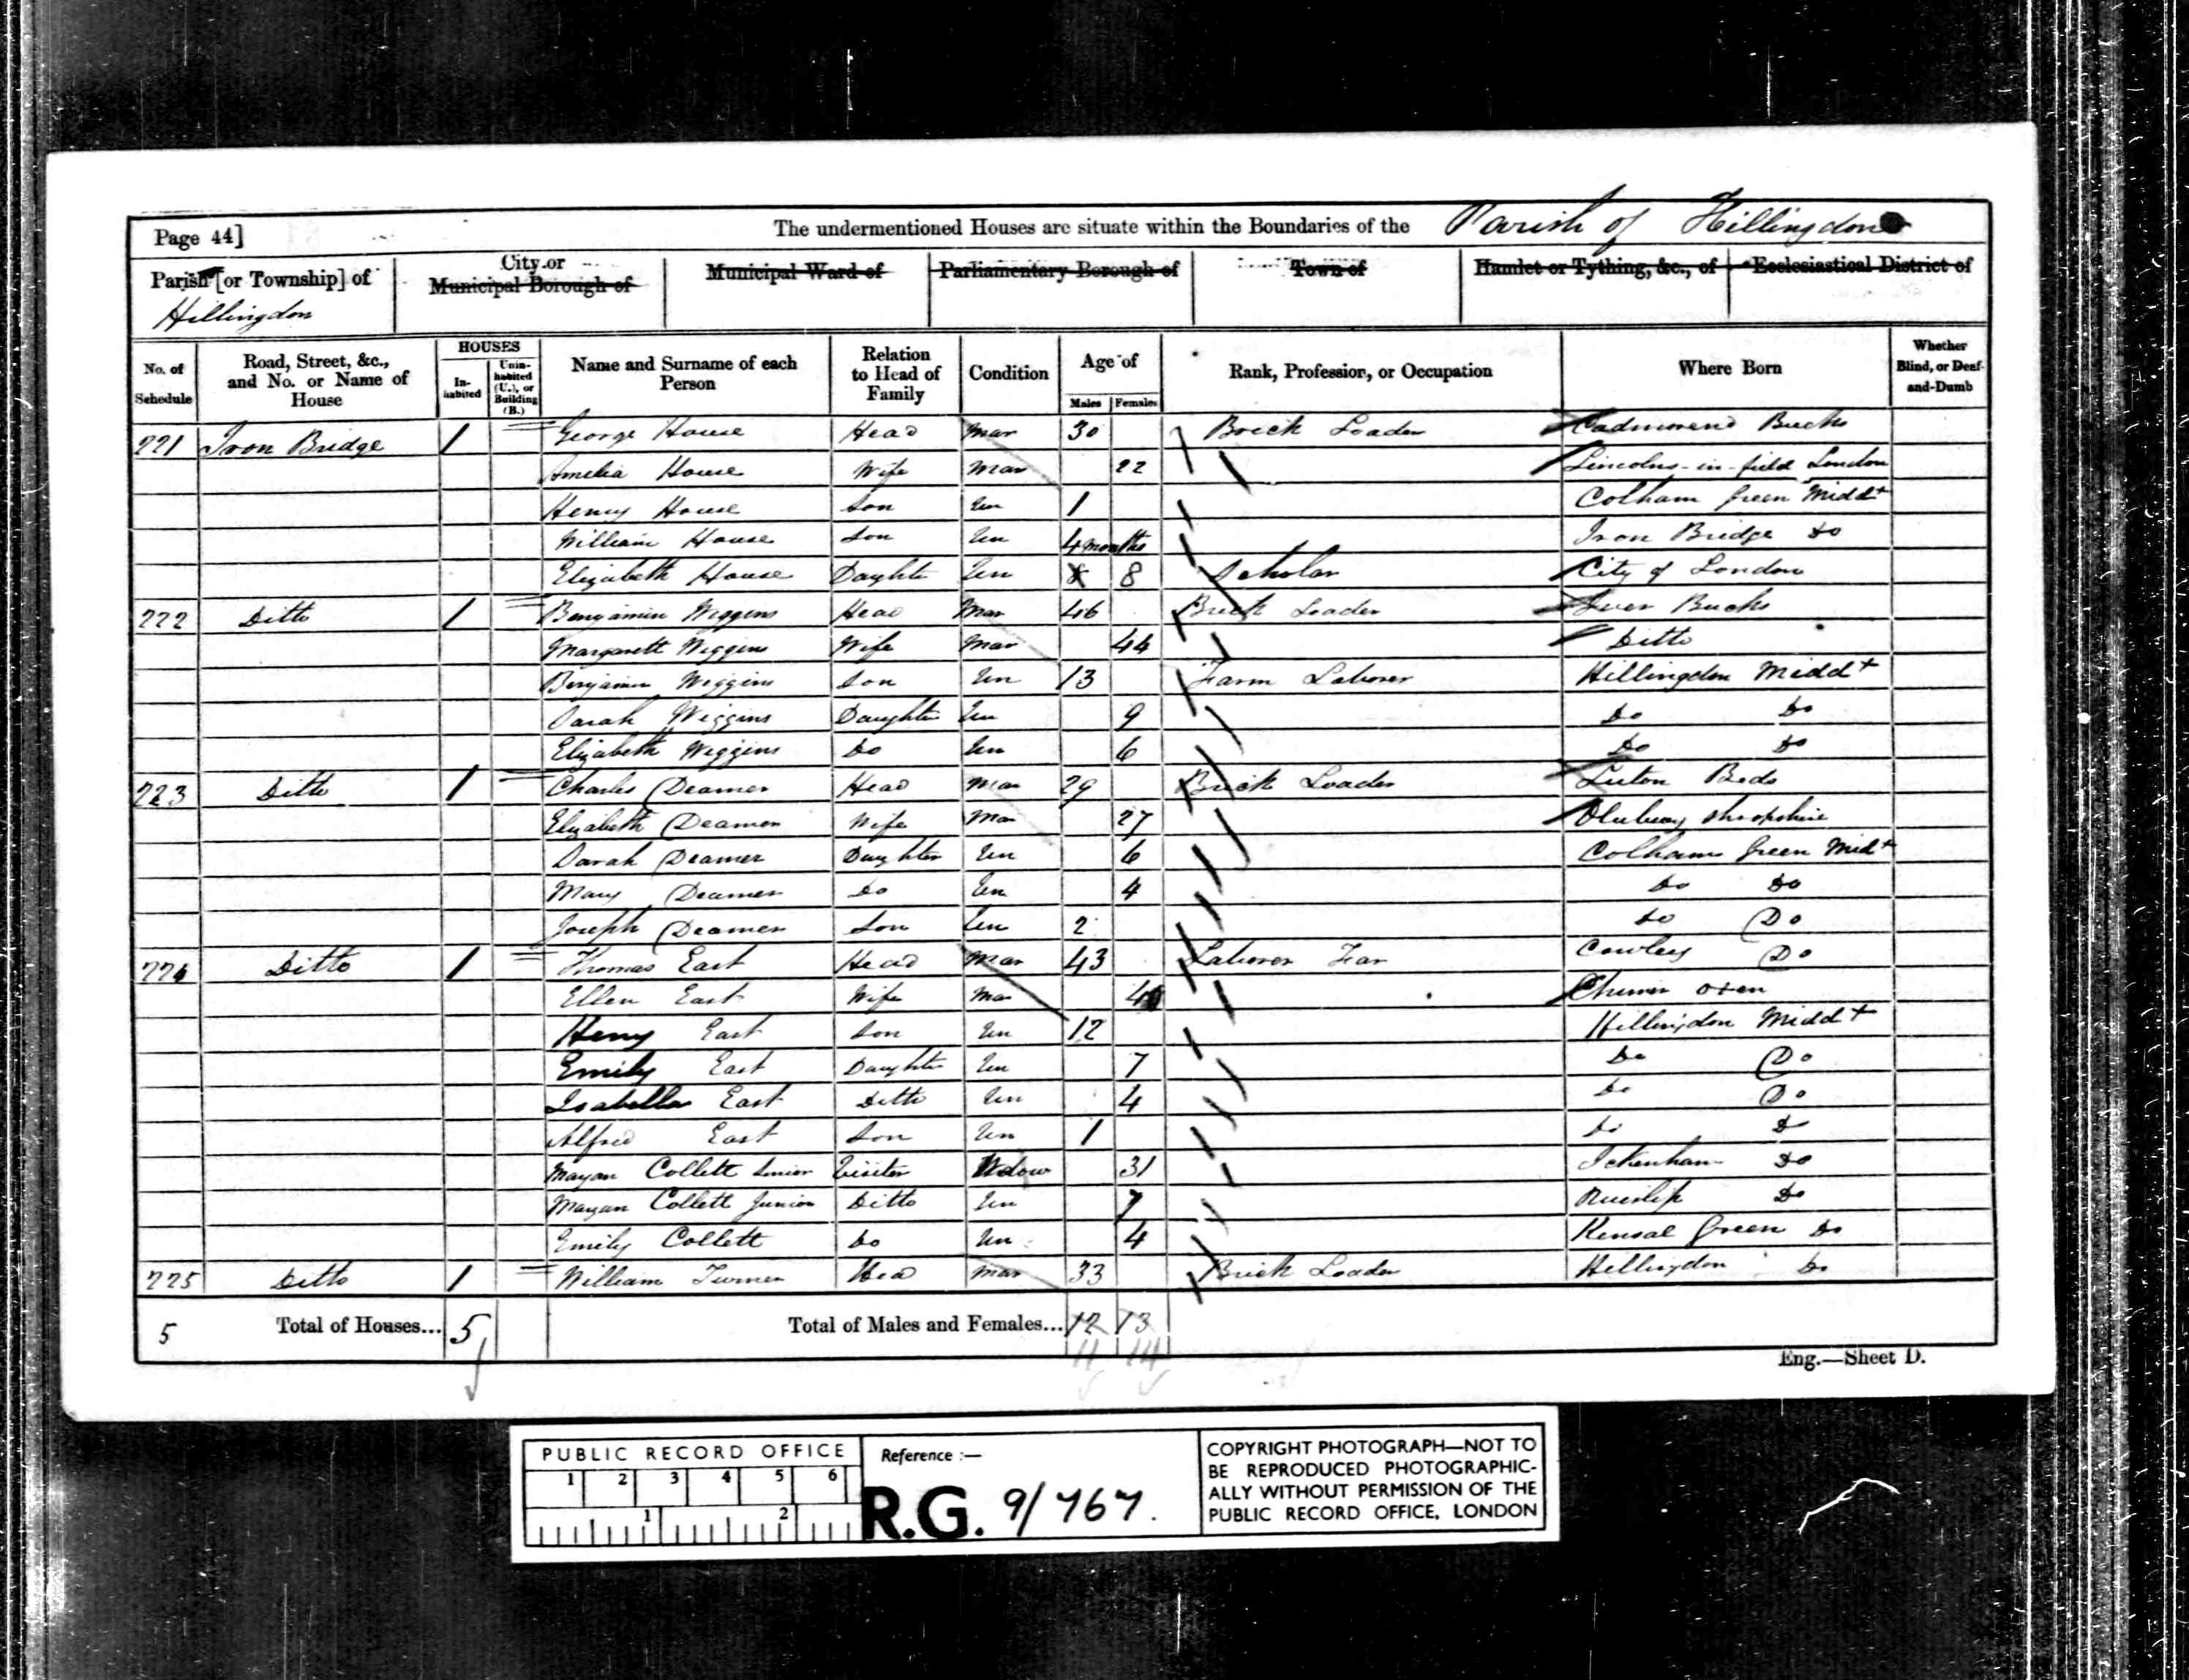 Page 44] The undermentioned Houses are situate within the Boundaries of the Parish of Hillingdon
Parish [or Township] of City or Municipal Borough of Municipal Ward of Parliamentary Borough of Town of Hamlet or Tything, &c., of Ecclesiastical District of
Hillingdon
No. of Schedule Road, Street, &c., and No. or Name of House HOUSES Inhabited Uninhabited (U.), or Building (B.) Name and Surname of each Person Relation to Head of Family Condition Age of Males Females Rank, Profession, or Occupation Where Born Whether Blind, or Deaf-and-Dumb
221 Iron Bridge 1 George House Head Mar 30 Brick Loader Cadmorend Bucks
Amelia House Wife Mar 22 Lincolns-in-field London
Henry House Son Un 1 Colham Green Middx
William House Son Un 4 months Iron Bridge Do
Elizabeth House Daughte Un 8 8 Scholar City of London
222 Ditto 1 Benjamin Wiggins Head Mar 46 Brick Loader Iver Bucks
Margarett Wiggins Wife Mar 44 Ditto
Benjamin Wiggins Son Un 13 Farm Laborer Hillingdon Middx
Sarah Wiggins Daughter Un 9 Do Do
Elizabeth Wiggins Do Un 6 Do Do
223 Ditto 1 Charles Deamer Head Mar 29 Brick Loader Luton Beds
Elizabeth Deamer Wife Mar 27 Shropshire
Sarah Deamer Daughter Un 6 Colham Green Midx
Mary Deamer Do Un 4 Do Do
Joseph Deamer Son Un 2 Do Do
224 Ditto 1 Thomas East Head Mar 43 Laborer Far Cowley Do
Ellen East Wife Mar 40 Chinnor Oxen
Henry East Son Un 12 Hillingdon Middx
Emily East Daughter Un 7 Do Do
Isabella East Ditto Un 4 Do Do
Alfred East Son Un 1 Do Do
Mayan Collett Senior Visiter Widow 31 Ickenham Do
Mayan Collett Junior Ditto Un 7 Ruislip Do
Emily Collett Do Un 4 Kensal Green Do
225 Ditto 1 William Turner Head Mar 33 Brick Loader Hillingdon Do
5 Total of Houses... 5 Total of Males and Females... 12 13
11 14
Eng.—Sheet D.
PUBLIC RECORD OFFICE
1 2 3 4 5 6
1 2
Reference :—
R.G. 9/767.
COPYRIGHT PHOTOGRAPH—NOT TO
BE REPRODUCED PHOTOGRAPHIC-
ALLY WITHOUT PERMISSION OF THE
PUBLIC RECORD OFFICE, LONDON